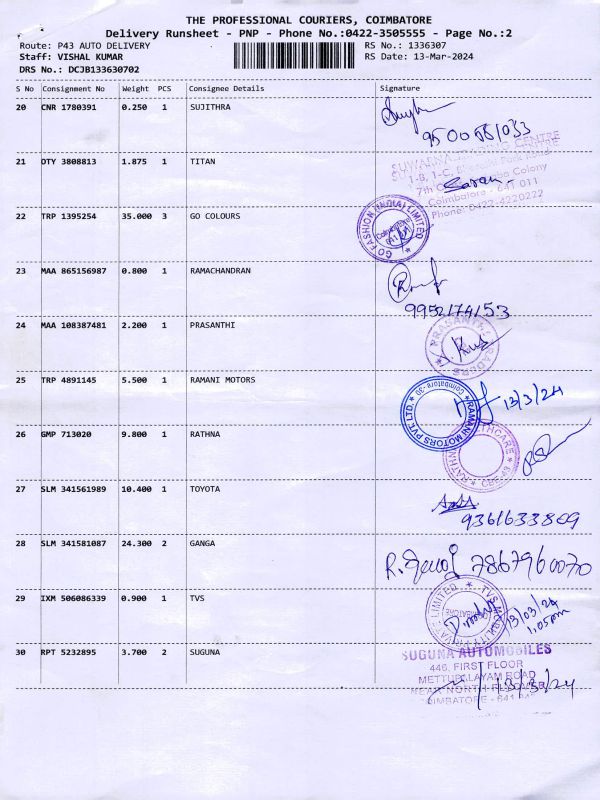 THE PROFESSIONAL COURIERS, COIMBATORE
Delivery Runsheet - PNP - Phone No.:0422-3505555 - Page No.:2
Route: P43 AUTO DELIVERY RS No.: 1336307
Staff: VISHAL KUMAR RS Date: 13-Mar-2024
DRS No.: DCJB133630702
S No Consignment No Weight PCS Consignee Details Signature
20 CNR 1780391 0.250 1 SUJITHRA
21 OTY 3808813 1.875 1 TITAN
1-B, 1-C,
Colony
Coimbatore - 641 011
Phone: 0422-4220222
22 TRP 1395254 35.000 3 GO COLOURS
GO FASHION (INDIA) LIMITED
Coimbatore
23 MAA 865156987 0.800 1 RAMACHANDRAN
9952174153
24 MAA 108387481 2.200 1 PRASANTHI
25 TRP 4891145 5.500 1 RAMANI MOTORS
RAMANI MOTORS PVT. LTD.
13/3/24
26 GMP 713020 9.800 1 RATHNA
CBE-43
27 SLM 341561989 10.400 1 TOYOTA
9361633809
28 SLM 341581087 24.300 2 GANGA
7867960070
29 IXM 506086339 0.900 1 TVS
13/03/24
1.05pm
30 RPT 5232895 3.700 2 SUGUNA
SUGUNA AUTOMOBILES
446, FIRST FLOOR
METTUPALAYAM ROAD
13/3/24